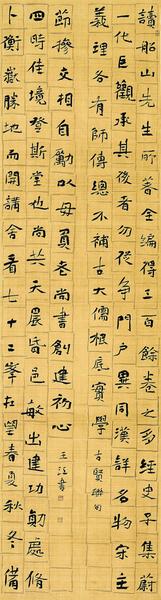 讀船山先生所著全編得三百餘卷之多經史子集蔚
一代巨觀承其後者勿復爭門户異同漢詳名物宋主
義理各有師傳總不補古大儒根底實學 古賢聯句
卜衡嶽勝地而開講舍看七十二峯在望春夏秋冬備
四時佳境登斯堂也尚共天晨昏敏出建功勛處脩
節摻交相自勵以毋負老尚書創建初心 王江書